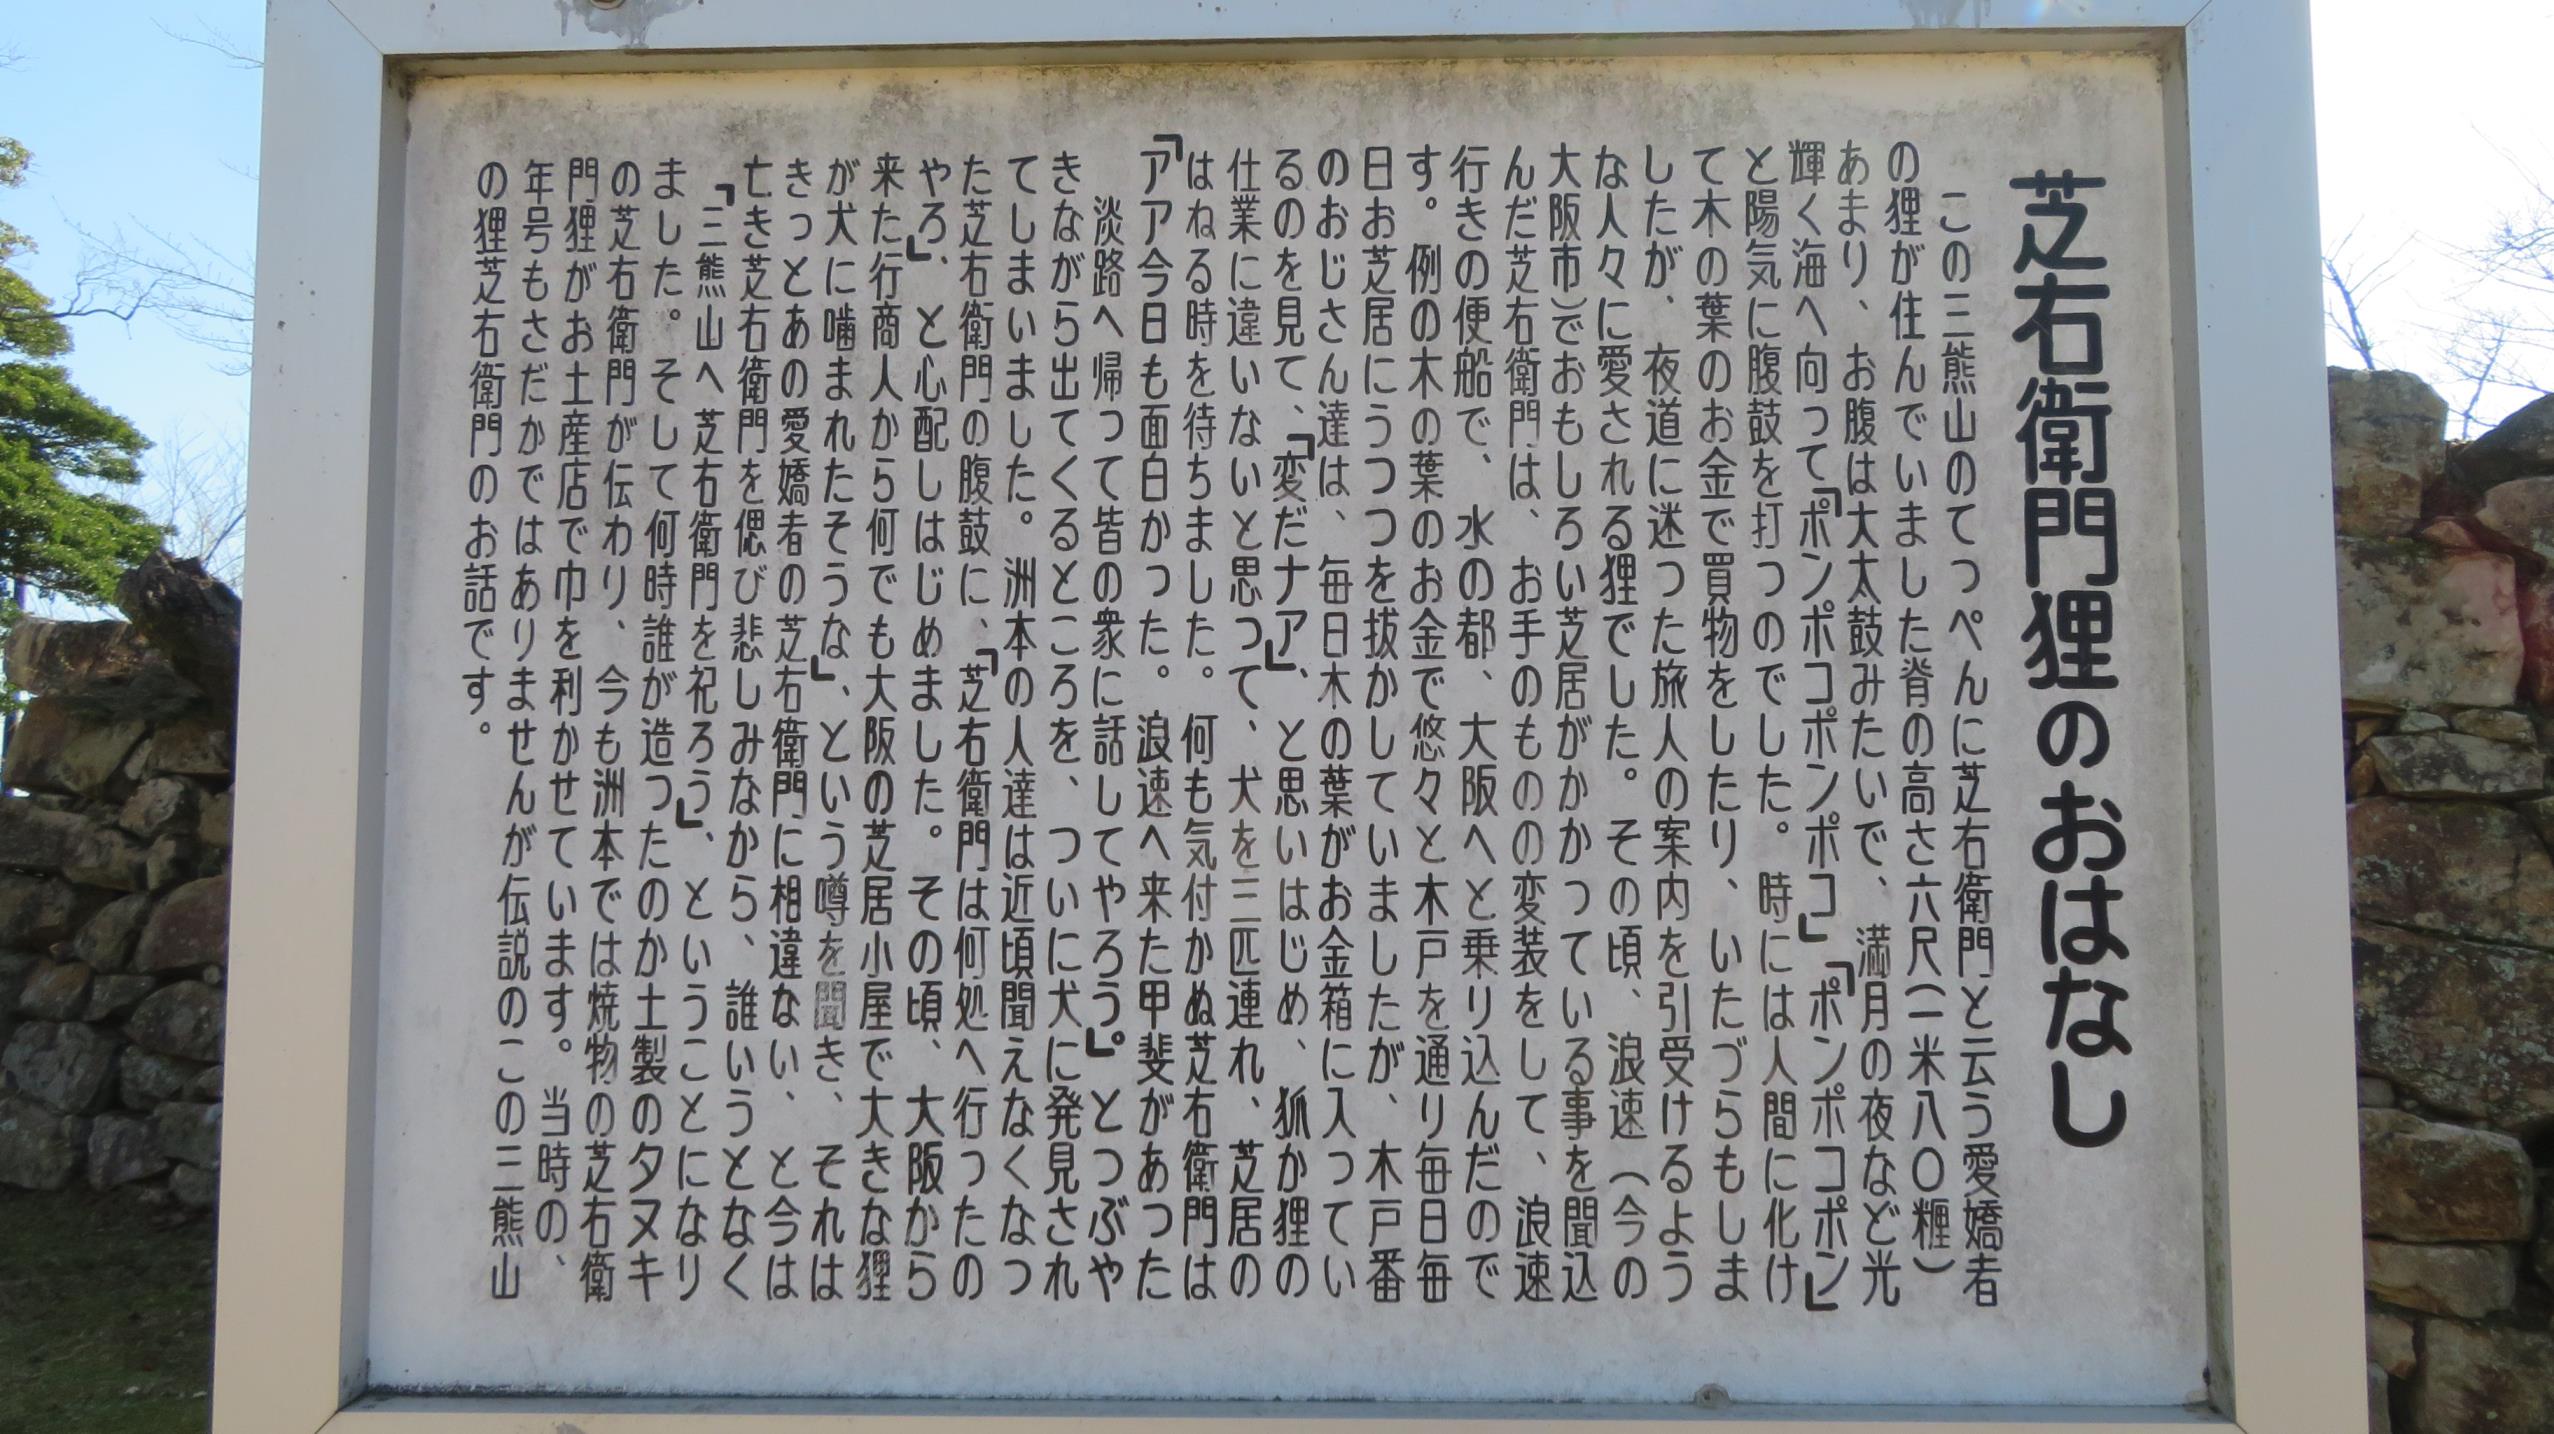 芝右衛門狸のおはなし
この三熊山のてっぺんに芝右衛門と云う愛嬌者
の狸が住んでいました脊の高さ六尺(一米八〇糎)
あまり、お腹は大太鼓みたいで、満月の夜など光
輝く海へ向って「ポンポコポンポコ」「ポンポコポン」
と陽気に腹鼓を打つのでした。時には人間に化け
て木の葉のお金で買物をしたり、いたづらもしま
したが、夜道に迷った旅人の案内を引受けるよう
な人々に愛される狸でした。その頃、浪速(今の
大阪市)でおもしろい芝居がかかっている事を聞込
んだ芝右衛門は、お手のものの変装をして、浪速
行きの便船で、水の都、大阪へと乗り込んだので
す。例の木の葉のお金で悠々と木戸を通り毎日毎
日お芝居にうつつを抜かしていましたが、木戸番
のおじさん達は、毎日木の葉がお金箱に入ってい
るのを見て、「変だナア」、と思いはじめ、狐か狸の
仕業に違いないと思って、犬を三匹連れ、芝居の
はねる時を待ちました。何も気付かぬ芝右衛門は
「アアア今日も面白かった。浪速へ来た甲斐があった
淡路へ帰って皆の衆に話してやろう」。とつぶや
きながら出てくるところを、ついに犬に発見され
てしまいました。洲本の人達は近頃聞えなくなっ
た芝右衛門の腹鼓に、「芝右衛門は何処へ行ったの
やろ」、と心配しはじめました。その頃、大阪から
来た行商人から何でも大阪の芝居小屋で大きな狸
が犬に噛まれたそうな」、という噂を聞き、それは
きっとあの愛嬌者の芝右衛門に相違ない、と今は
亡き芝右衛門を偲び悲しみなから、誰いうとなく
「三熊山へ芝右衛門を祀ろう」、ということになり
ました。そして何時誰が造ったのか土製のタヌキ
の芝右衛門が伝わり、今も洲本では焼物の芝右衛
門狸がお土産店で巾を利かせています。当時の、
年号もさだかではありませんが伝説のこの三熊山
の狸芝右衛門のお話です。